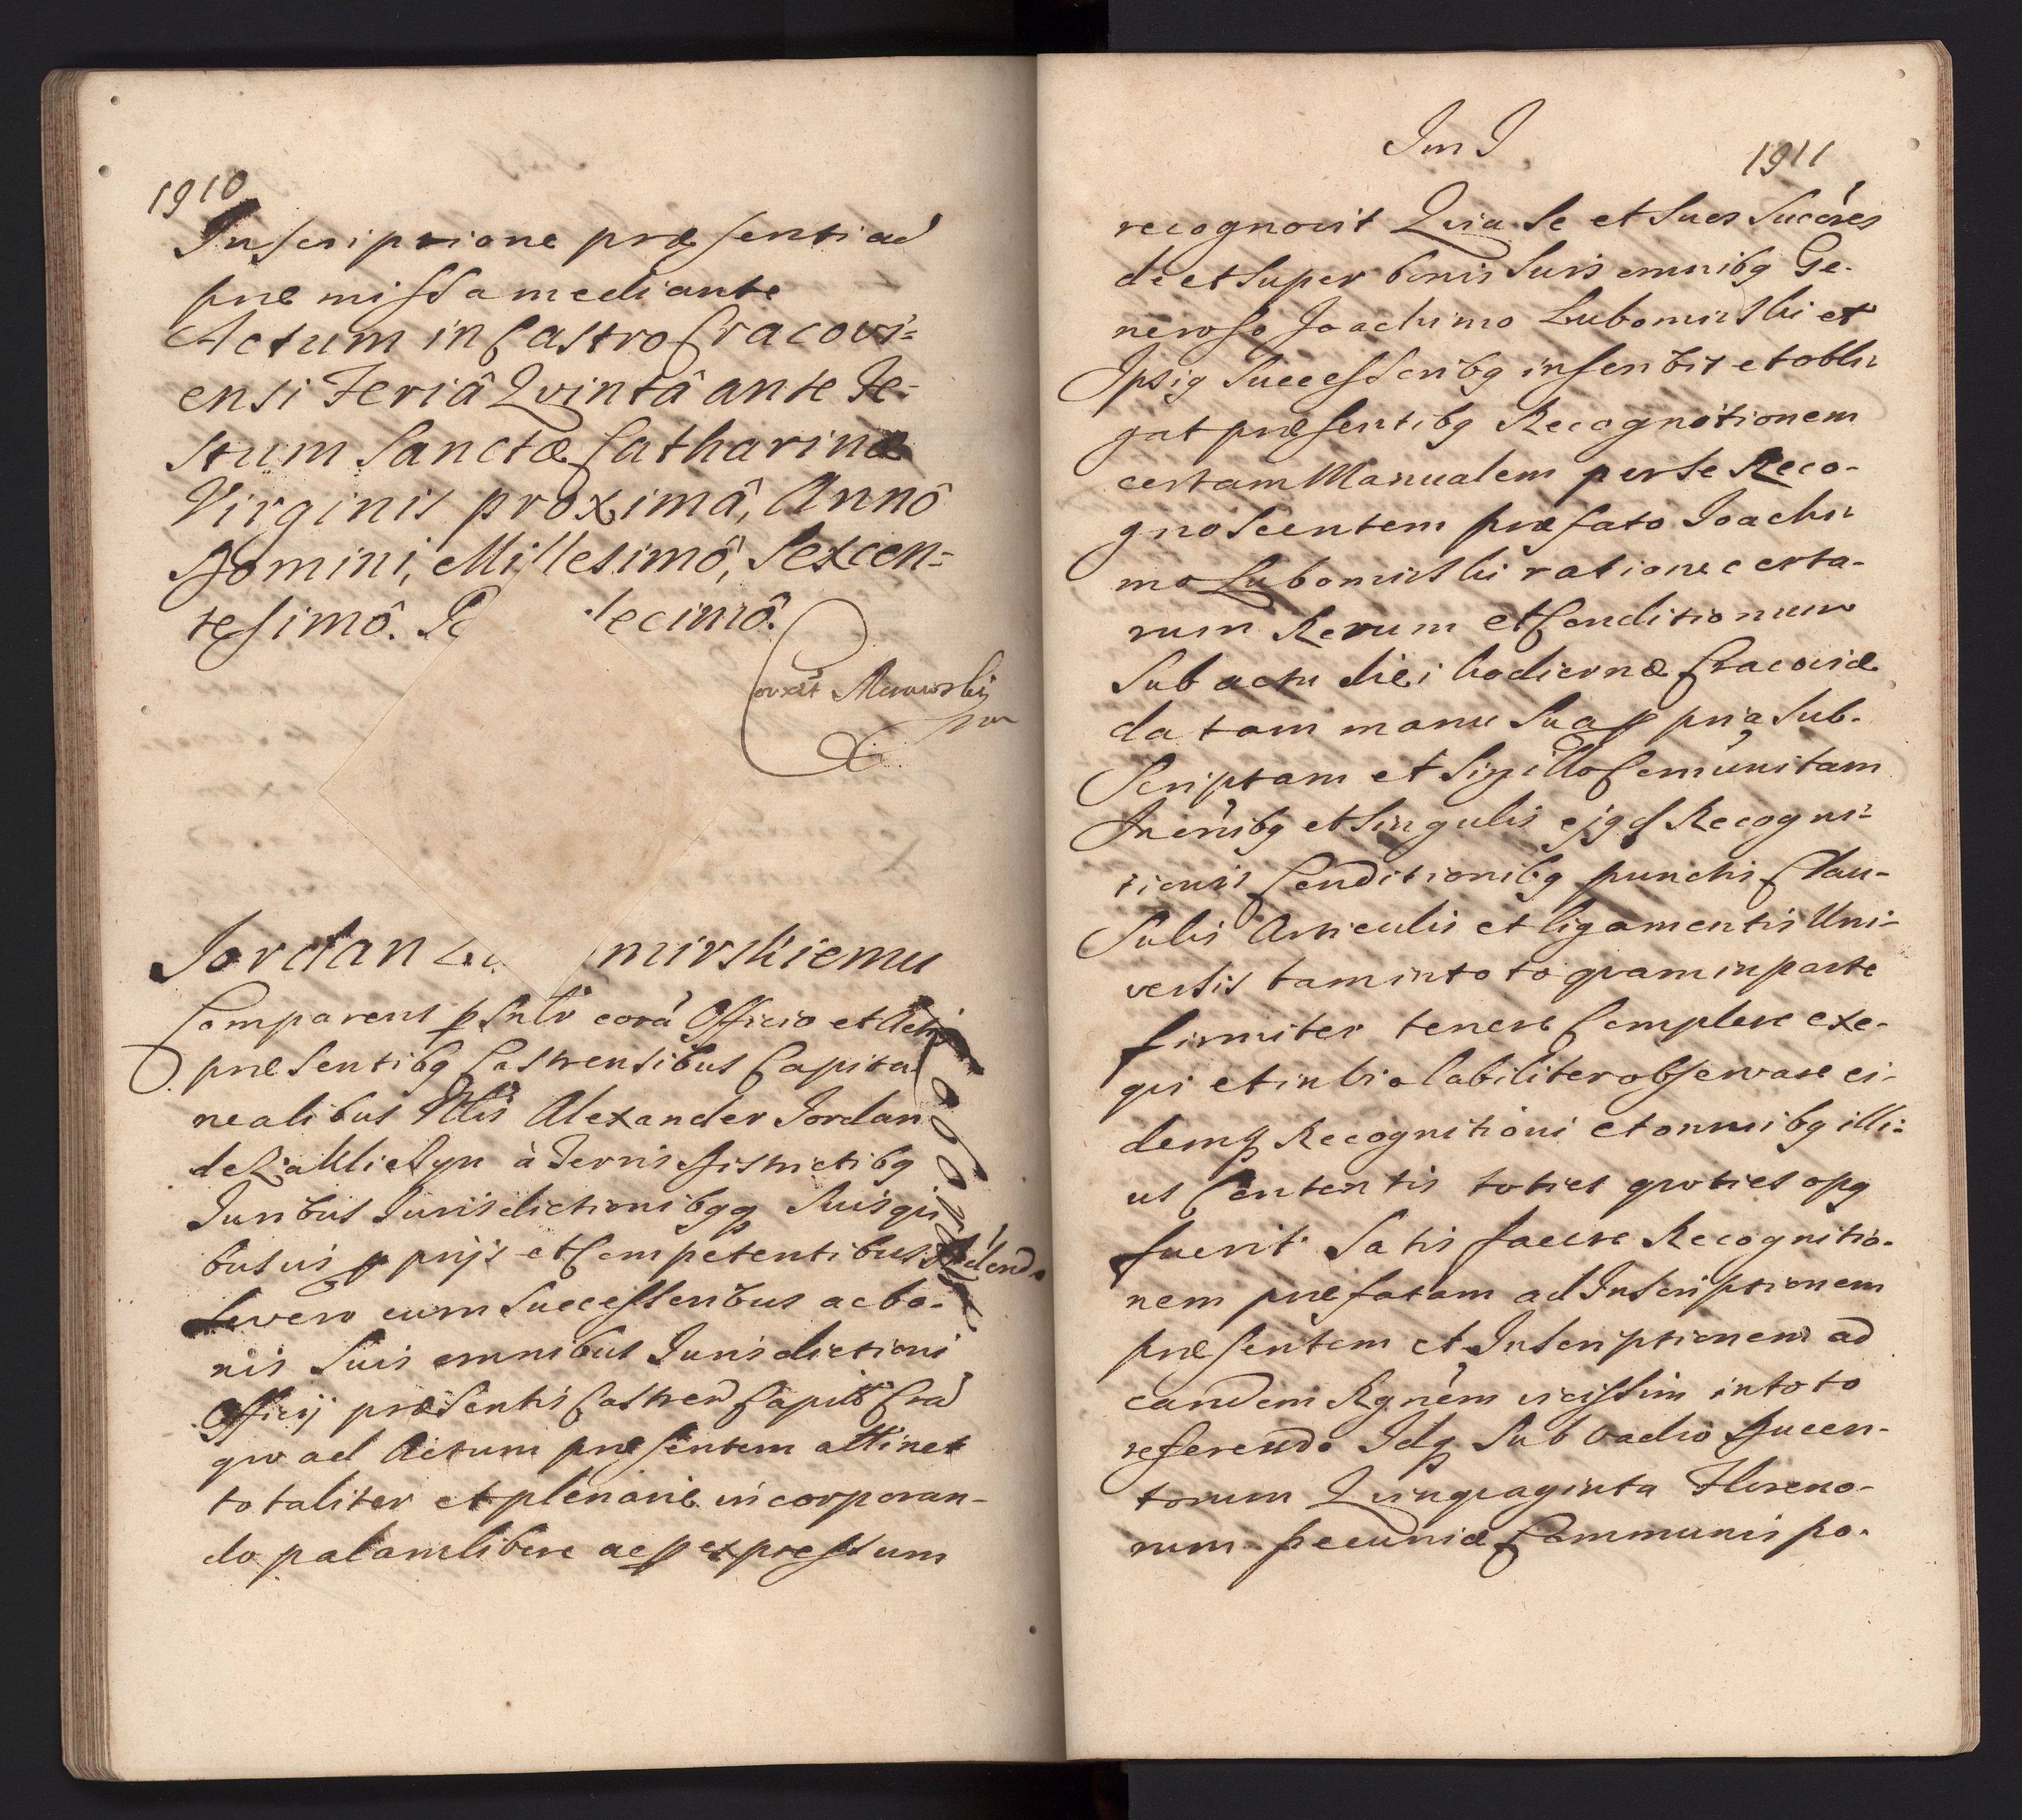 1910
Inscriptione præsenti ad
præmissa mediante
Actum in Castro Cracovi-
ensi Feriâ Qvintâ ante Fe-
stum Sanctæ Catharinæ
Virginis proximâ, Annô
Domini, Millesimô, Sexcen-
tesimô. decimô.
Jordan mirskiemu
Comparens psntr corã Officio et Actis
præsentibg Castrensibus Capita
nealibus Alexander Jordan
de Zakliczyn à Terris Districtibg
Juribus Jurisdictionibgq Suis qui
busuis pprijs et Competentibus
se vero cum Successoribus ac bo-
nis Suis omnibus Jurisdictioni
Officij præsentis Castren Capit Crac
qvo ad Actum præsentem attinet
totaliter et plenarie incorporan-
do palam libere ac p expressum
1911
recognovit Qvia Se et Suos Succéres
de et Super bonis Suis omnibg Ge-
neroso Joachimo Lubomirski et
Ipsig Successoribg inscribit et obli-
gat præsentibg Recognitionem
certam Manualem per se Reco-
gnoscentem præfato Joachi-
mo Lubomirski ratione certa-
rum Rerum et Conditionum
Sub actu diei hodiernæ Cracoviæ
datam manu Sua ppria Sub-
Scriptam et Sigillo Comunitam
In oñibg et Singulis ejgd Recogni-
tionis Conditionibg punctis Clau-
Sulis Articulis et ligamentis Uni-
versis tam in toto qvam in parte
firmiter tenere Complere exe-
qui et inviolabiliter observare ei-
demq Recognitioni et omnibg illi-
us Contentis toties qvoties opg
fuerit Satisfacere Recognitio-
nem præfatam ad Inscriptionem
præsentem et Inscriptionem ad
eandem Rgnem vicissim in toto
referendo Idq Sub vadio Ducen-
torum Qvinqvaginta Floreno-
rum pecuniæ Communis po-